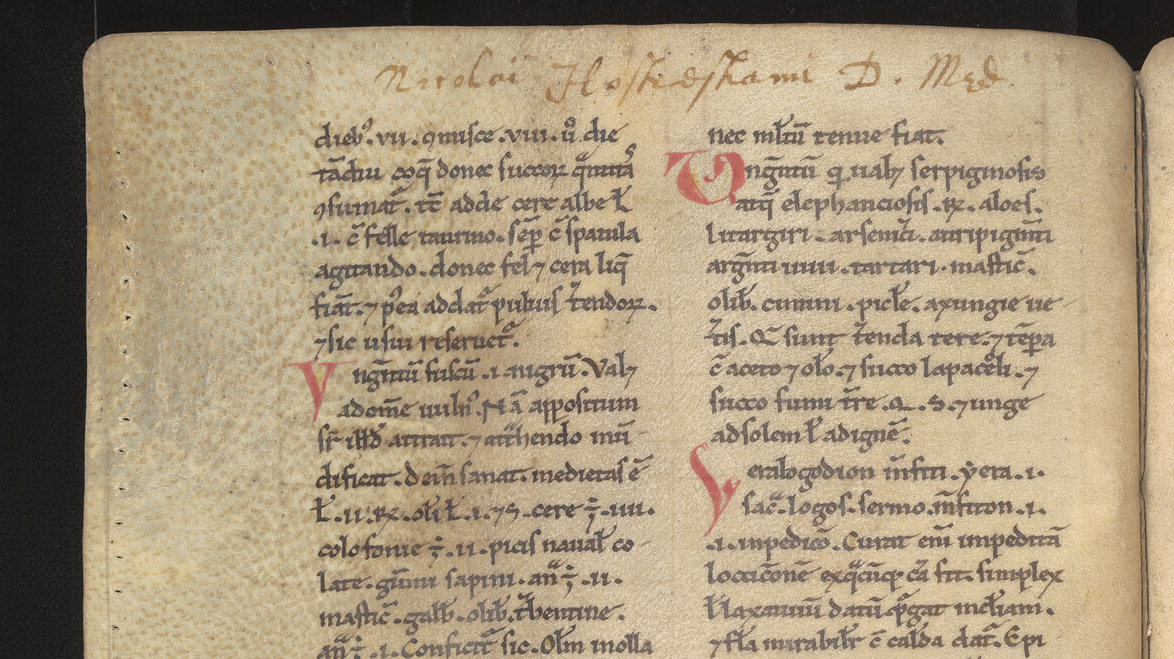 Nicolai D. Med
dieb⁹. vii. ꝯmisce. viii. u᷎o. die
tādiu coq̄ donec succoꝝ
ꝯsumat᷑. tc̄ adde cere albe ł
.i. c̄ felle taurino. sēp c̄ spatula
agitando. donec fel ⁊ cera liq̄
fiāt. ⁊ p᷎ea addat᷑ puluis t᷑endoꝝ.
⁊ sic usui reseruet᷑.
Vngn̄tū fuscū .i. nigrū. Valꝫ
ad om̄e uuln᷒. Nā appositum
sr̄ illđ attrait. ⁊ att᷑hendo mū
dificat. dein̄ sanat. medietas ē
ł. ii. ꝶ. olī ł. i. ⁊ s. cere ℥. iiii.
colofonie ℥. ii. picis nauał co
late. gūmi sapini. an̄ ℥. ii.
mastic̄. galƀ. oliƀ. t᷑bentine.
an̄ ℥. i. Conficit᷑ sic. Olm̄ molla
nec ml̄tū tenue fiat.
Vngn̄tū qi ualꝫ serpiginosis
atq̄ elephanciosis. ꝶ. aloes.
litargiri. arsenici. auripigm̄ti
argn̄ti uiui. tartari. mastic̄.
oliƀ. cimini. picle. axungie ue
t᷑is. Q̄ sunt t᷑enda tere. ⁊ tēpa
c̄ aceto ⁊ olō. ⁊ succo lapacēli. ⁊
succo fumi t᷑re. Q. S. ⁊ unge
ad solem ł ad ignē.
Yeralogodion mēfiti. yera .i.
sac᷑. logos. sermo. mēfiton .i.
.i. impedicō. Curat eni impeditā
loccicōnē ex q̄cūq᷒ cā fit. simplex
ł laxatiuū datū p᷑gat melām.
⁊ fła mirabilr̄ c̄ calda dat᷑. Epi